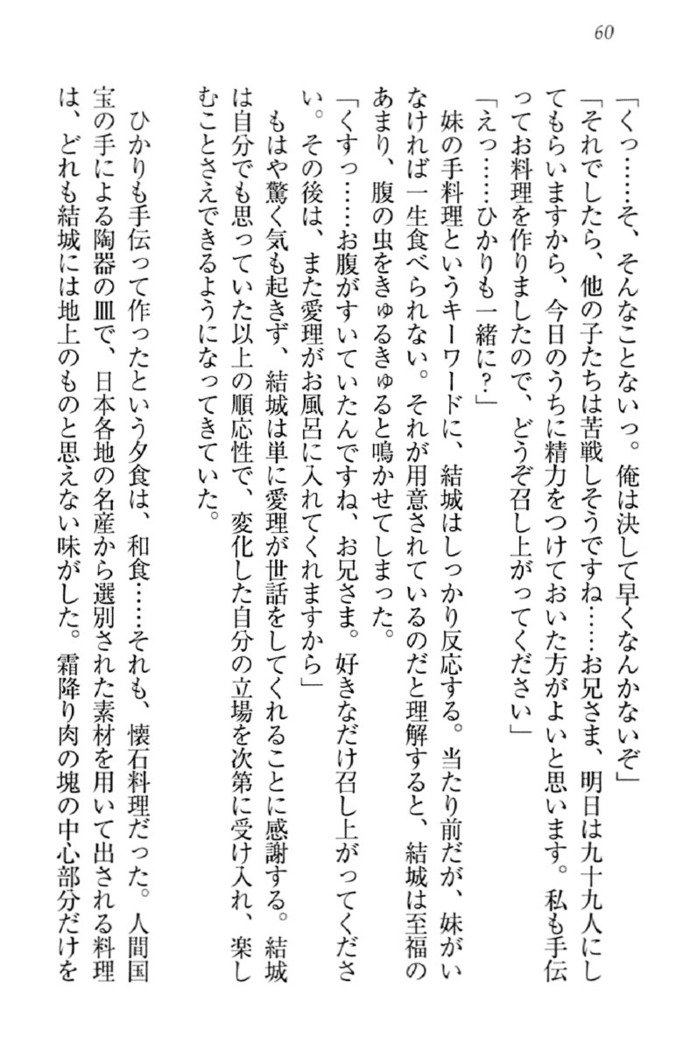 60
「くっ……そ、そんなことないっ。俺は決して早くなんかないぞ」
「それでしたら、他の子たちは苦戦しそうですね……お兄さま、明日は九十九人にし
てもらいますから、今日のうちに精力をつけておいた方がよいと思います。私も手伝
ってお料理を作りましたので、どうぞ召し上がってください」
「えっ……ひかりも一緒に？」
　妹の手料理というキーワードに、結城はしっかり反応する。当たり前だが、妹がい
なければ一生食べられない。それが用意されているのだと理解すると、結城は至福の
あまり、腹の虫をきゅるきゅると鳴かせてしまった。
「くすっ……お腹がすいていたんですね、お兄さま。好きなだけ召し上がってくださ
い。その後は、また愛理がお風呂に入れてくれますから」
　もはや驚く気も起きず、結城は単に愛理が世話をしてくれることに感謝する。結城
は自分でも思っていた以上の順応性で、変化した自分の立場を次第に受け入れ、楽し
むことさえできるようになってきていた。
　ひかりも手伝って作ったという夕食は、和食……それも、懐石料理だった。人間国
宝の手による陶器の皿で、日本各地の名産から選別された素材を用いて出される料理
は、どれも結城には地上のものと思えない味がした。霜降り肉の塊の中心部分だけを